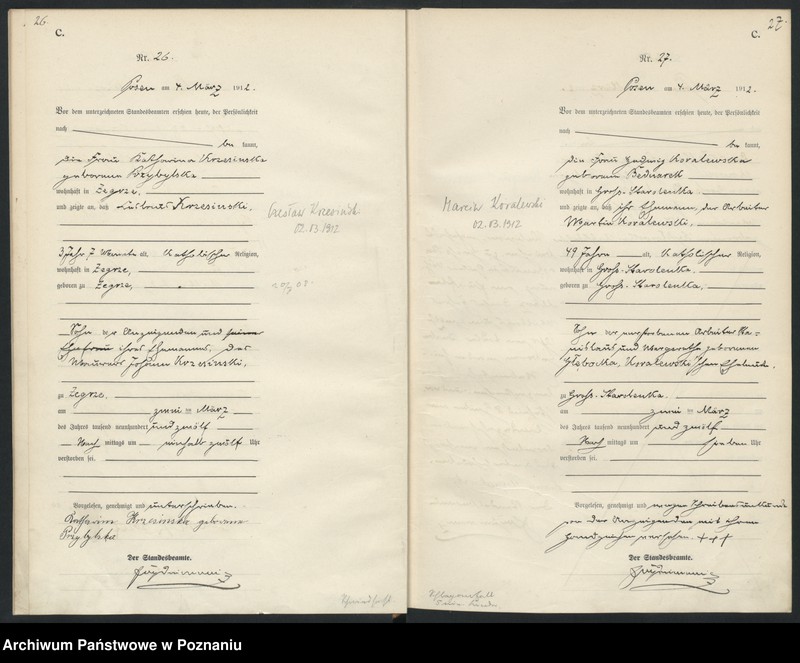 26.
C.
Nr. 26.
Posen am 4. März 1912.
Vor dem unterzeichneten Standesbeamten erschien heute, der Persönlichkeit
nach
be kannt,
die Frau Katharina Krzesinska
geborene Przybylska
wohnhaft in Zegrze,
und zeigte an, daß Krzesinski,
3 Jahr 7 Monate alt, katholischer Religion,
wohnhaft in Zegrze,
geboren zu Zegrze,
Sohn der Anzeigenden und seiner
Ehefrau ihres Ehemannes, des
Maurers Johann Krzesinski,
zu Zegrze,
am zwei ten März
des Jahres tausend neunhundert und zwölf
Nach mittags um einhalb zwölf Uhr
verstorben sei.
Vorgelesen, genehmigt und unterschrieben.
Katharina Krzesinska geborene
Przybylska
Der Standesbeamte.
Czesław Krzesiński
02.03.1912
27.
C.
Nr. 27.
Posen am 4. März 1912.
Vor dem unterzeichneten Standesbeamten erschien heute, der Persönlichkeit
nach
be kannt,
die Frau Hedwig Koralewska
geborene Bednarek
wohnhaft in Groß-Starolenka
und zeigte an, daß ihr Ehemann, der Arbeiter
Martin Koralewski,
49 Jahre alt, katholischer Religion,
wohnhaft in Groß-Starolenka,
geboren zu Groß-Starolenka,
Sohn der verstorbenen Arbeiter Sta=
nislaus und Margaretha geborenen
Głębocka, Koralewski'schen Eheleute,
zu Groß-Starolenka,
am zwei ten März
des Jahres tausend neunhundert und zwölf
Nach mittags um sieben Uhr
verstorben sei.
Vorgelesen, genehmigt und wegen Schreibensunkunde
von der Anzeigenden mit ihrem
Handzeichen versehen. +++
Der Standesbeamte.
Marcin Koralewski
02.03.1912
Archiwum Państwowe w Poznaniu